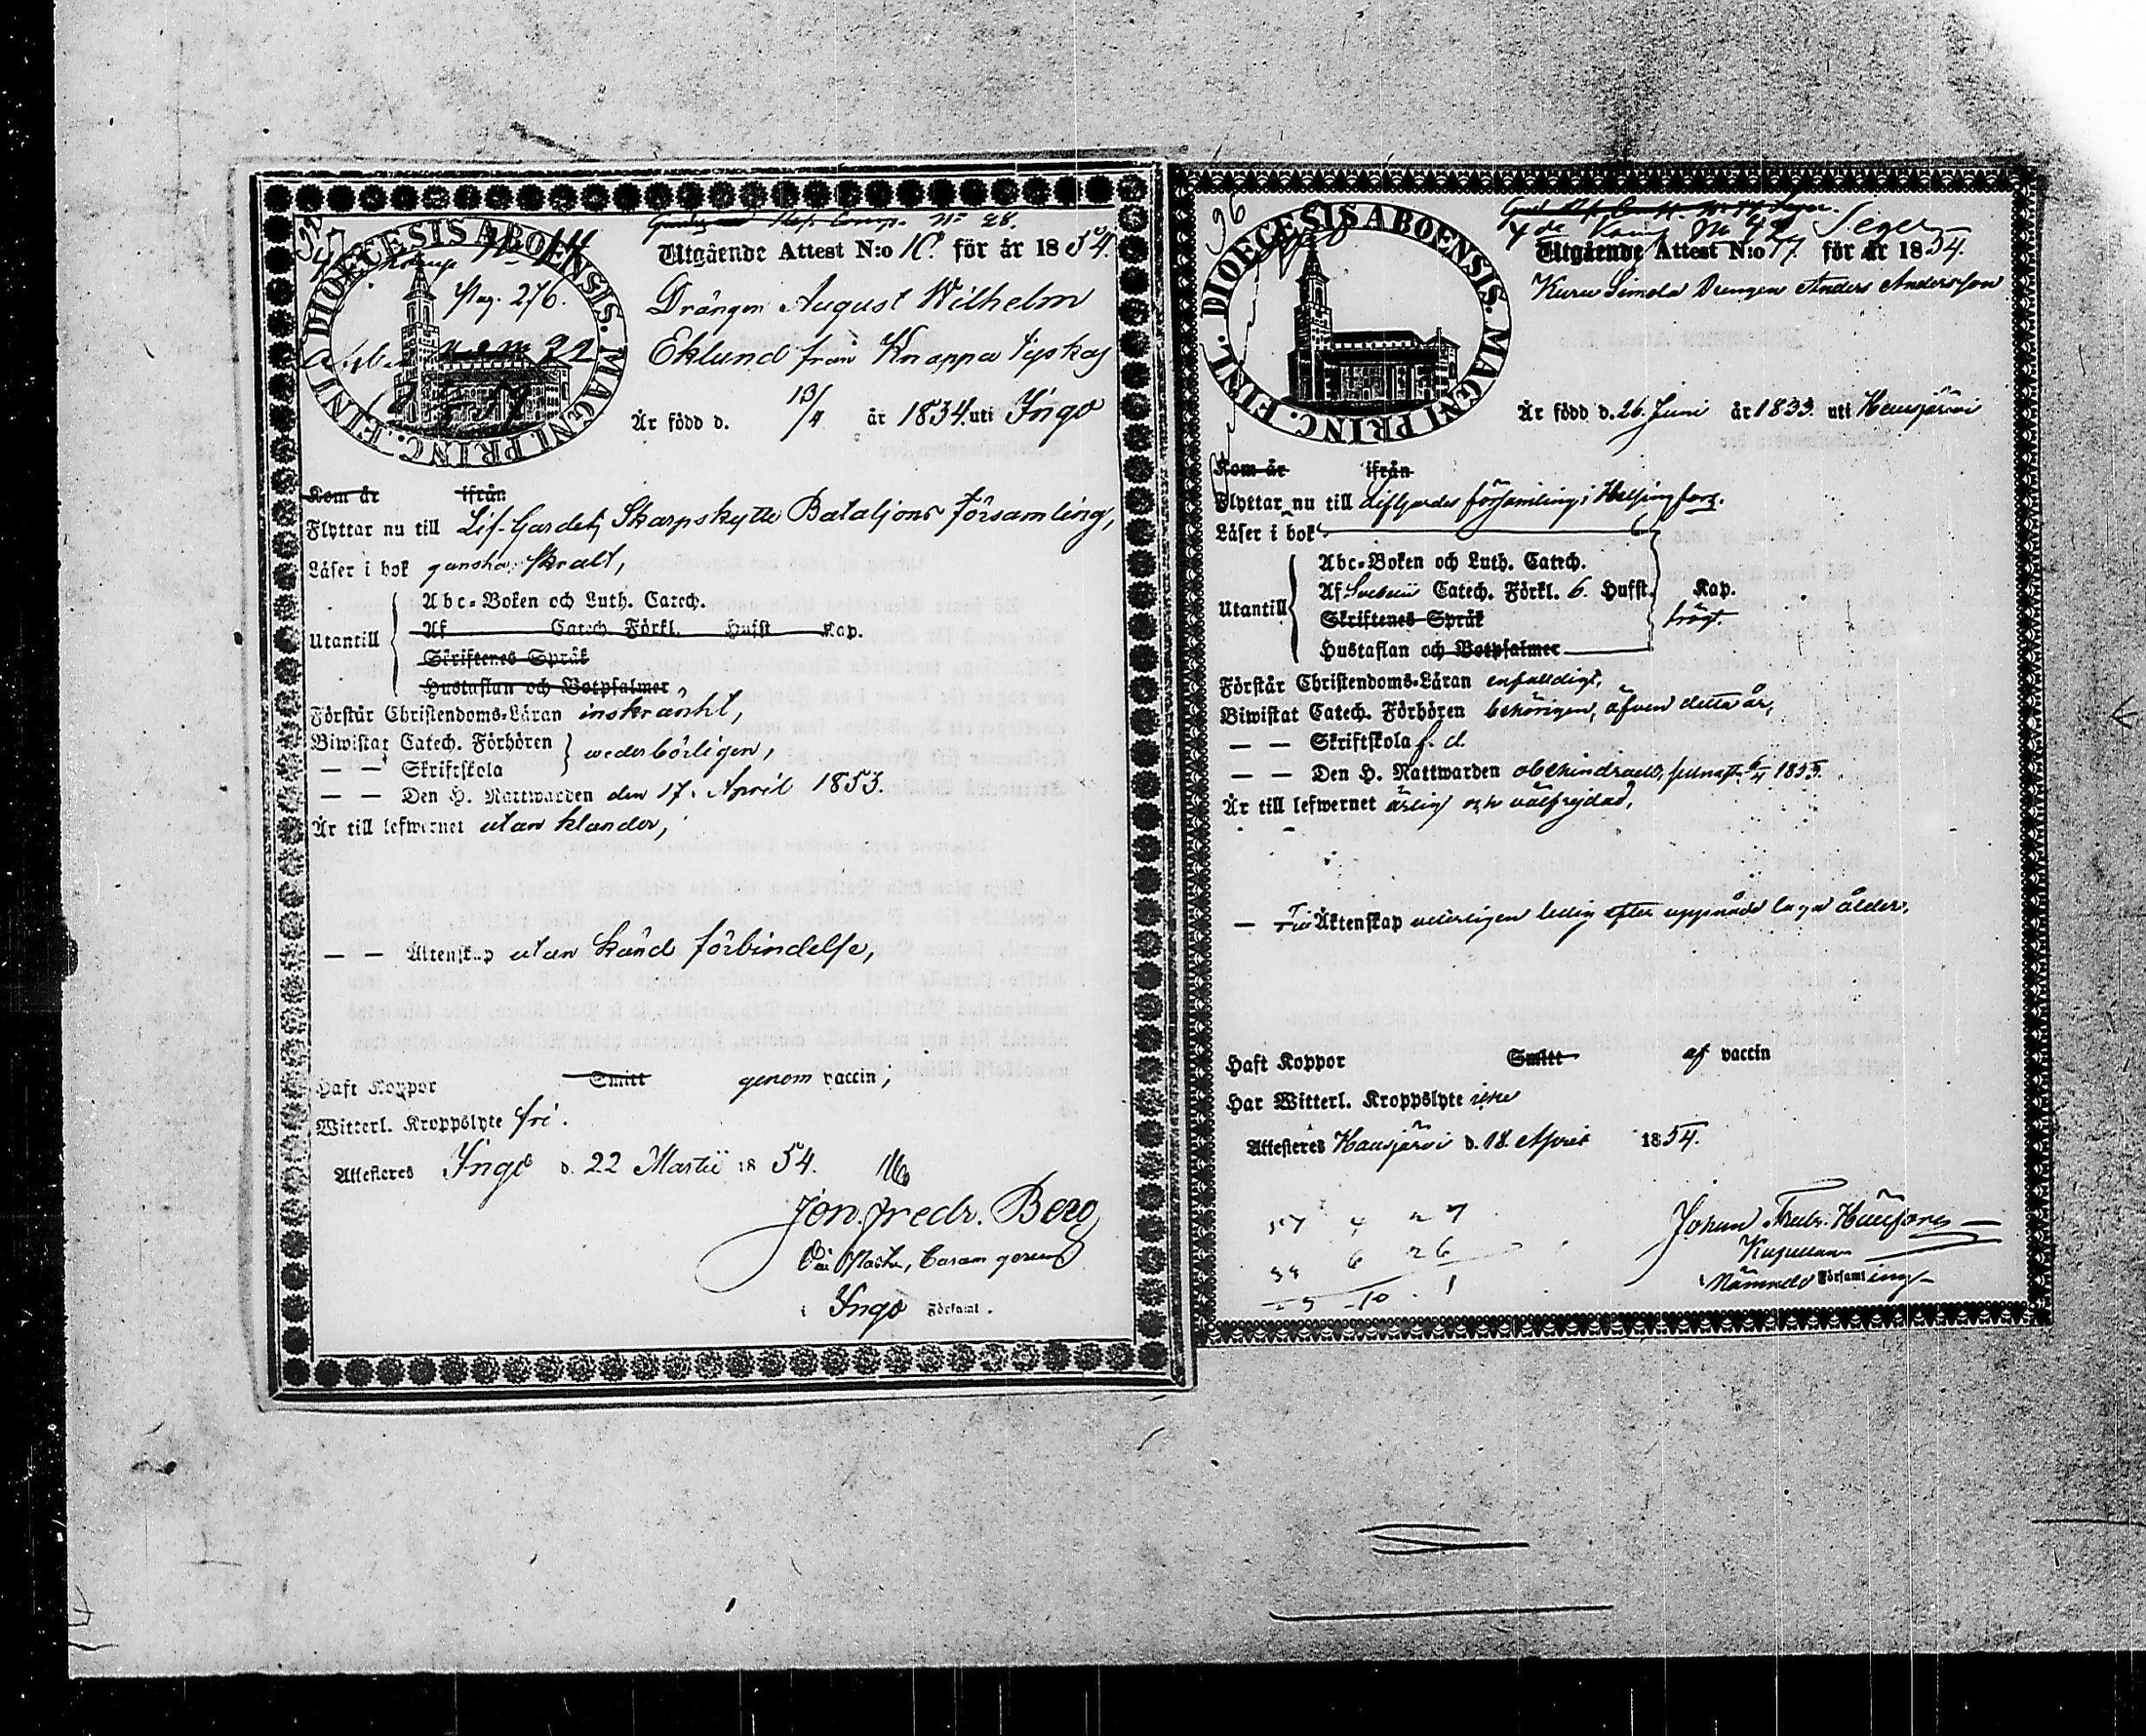 DIOECESIS ABOENSIS. MAGNI PRINC. FINL.
Pag. 276.
Comp. No 28.
Utgående Attest N:o för år 1854.
Drängen August Wilhelm
Eklund från Knappa Tyskas
Är född d. 13/4 år 1834. uti Ingo
Kom år ifrån
Flyttar nu till Lif-Gardets Skarpskytte Bataljons Församling,
Läser i bok ganska skralt,
Utantill
Abc-Boken och Luth. Catech.
Af Catech. Förkl. Husst. Kap.
Skriftenes Språk
Hustaflan och Botpsalmer
Förstår Christendoms-Läran inskränkt,
Biwistat Catech. Förhören
— — Skriftskola
wederbörligen,
— — Den H. Nattwarden den 17. April 1853.
Är till lefwernet utan klander,
— — Äktenskap utan känd förbindelse,
Haft Koppor Smitt genom vaccin,
Witterl. Kroppslyte fri.
Attesteres Ingo d. 22 Martii 1854.
Jon. Fredr. Berg
i Ingo Församl.
96
DIOECESIS ABOENSIS. MAGNI PRINC. FINL.
4de Komp No 42 Seger
Utgående Attest N:o 17. för år 1854.
Drengen Anders Andersson
Är född d. 26. Juni år 1833. uti Hausjärvi
Kom år ifrån
Flyttar nu till Lifgardes församling i Helsingfors.
Läser i bok
Utantill
Abc-Boken och Luth. Catech.
Af Svebelii Catech. Förkl. 6. Husst. Kap.
Skriftenes Språk
trögt.
Hustaflan och Botpsalmer
Förstår Christendoms-Läran enfaldigt,
Biwistat Catech. Förhören behörigen, äfven detta år,
— — Skriftskola f. d.
— — Den H. Nattwarden obehindrad,
Är till lefwernet ärlig och välfrejdad,
— Till Äktenskap ledig efter uppnådd laga ålder.
Haft Koppor Smitt af vaccin
Har Witterl. Kroppslyte icke
Attesteres Hausjärvi d. 18. April 1854.
57 4 27
6 26
10 1
Johan Fredr.
Kapellan
i Nämnde Församling